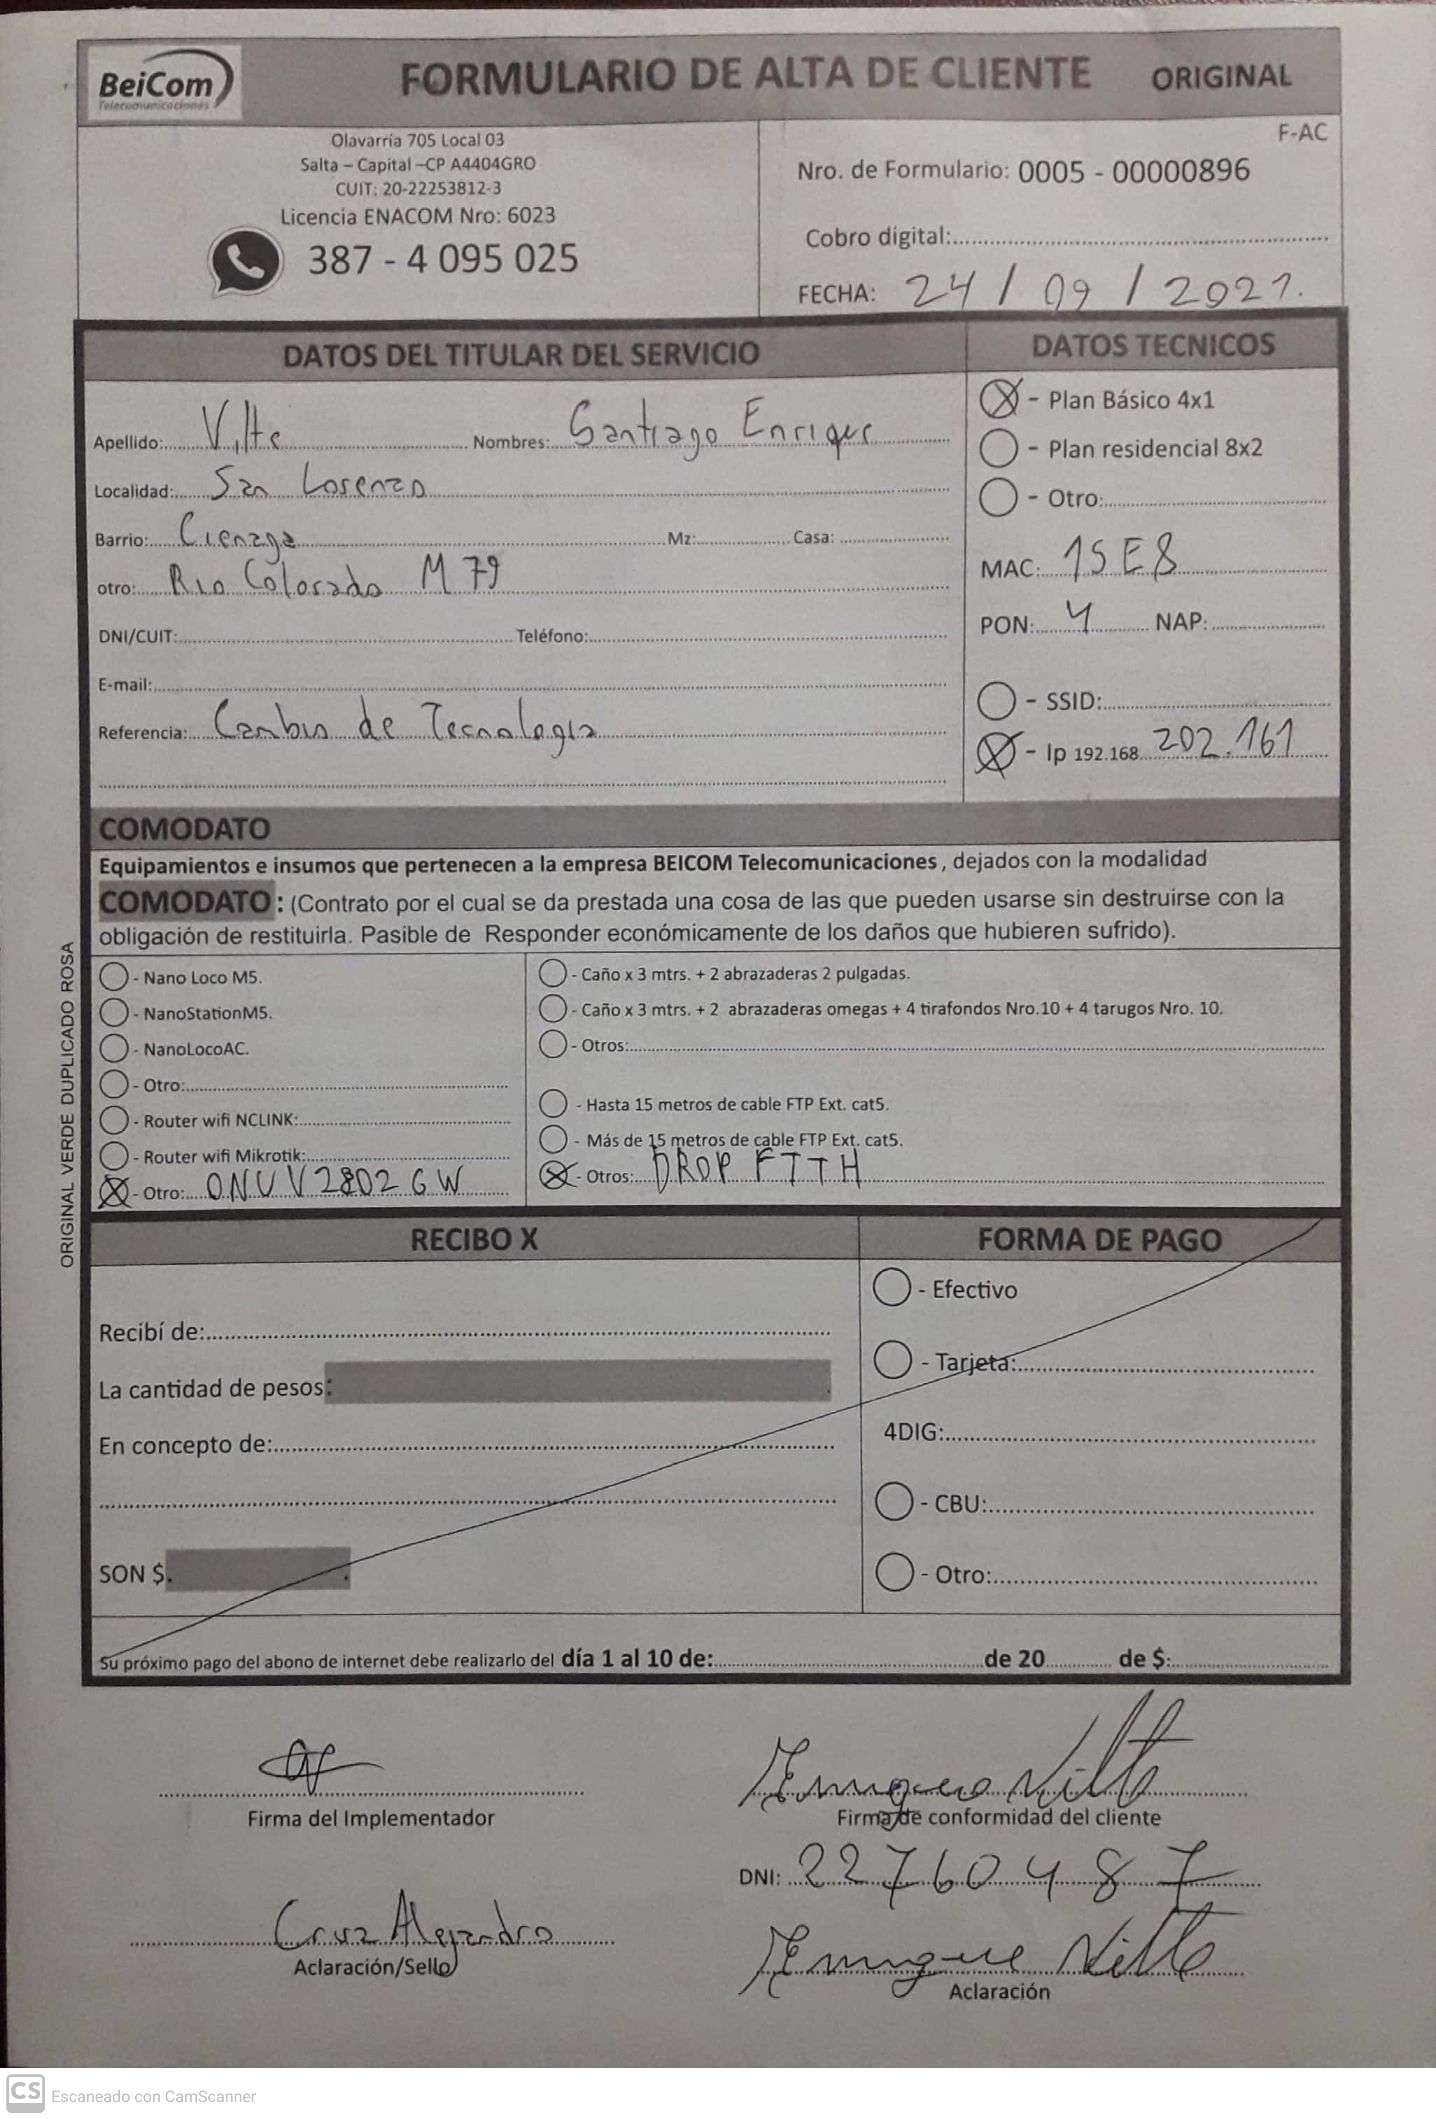 BeiCom
Telecomunicaciones
FORMULARIO DE ALTA DE CLIENTE ORIGINAL
Olavarría 705 Local 03
Salta – Capital –CP A4404GRO
CUIT: 20-22253812-3
Licencia ENACOM Nro: 6023
387 - 4 095 025
F-AC
Nro. de Formulario: 0005 - 00000896
Cobro digital:
FECHA: 24 / 09 / 2021.
DATOS DEL TITULAR DEL SERVICIO
Apellido: Vilte Nombres: Santiago Enrique
Localidad: San Lorenzo
Barrio: Cienaga Mz: Casa:
otro: Rio Colorado M 79
DNI/CUIT: Teléfono:
E-mail:
Referencia: Cambio de Tecnologia
DATOS TECNICOS
- Plan Básico 4x1
- Plan residencial 8x2
- Otro:
MAC: 15E8
PON: 4 NAP:
- SSID:
- Ip 192.168. 202.161
COMODATO
Equipamientos e insumos que pertenecen a la empresa BEICOM Telecomunicaciones, dejados con la modalidad
COMODATO: (Contrato por el cual se da prestada una cosa de las que pueden usarse sin destruirse con la
obligación de restituirla. Pasible de Responder económicamente de los daños que hubieren sufrido).
- Nano Loco M5.
- NanoStationM5.
- NanoLocoAC.
- Otro:
- Router wifi NCLINK:
- Router wifi Mikrotik:
- Otro: ONU V2802GW
- Caño x 3 mtrs. + 2 abrazaderas 2 pulgadas.
- Caño x 3 mtrs. + 2 abrazaderas omegas + 4 tirafondos Nro.10 + 4 tarugos Nro. 10.
- Otros:
- Hasta 15 metros de cable FTP Ext. cat5.
- Más de 15 metros de cable FTP Ext. cat5.
- Otros: DROP FTTH
ORIGINAL VERDE DUPLICADO ROSA
RECIBO X
Recibí de:
La cantidad de pesos:
En concepto de:
SON $.
FORMA DE PAGO
- Efectivo
- Tarjeta:
4DIG:
- CBU:
- Otro:
Su próximo pago del abono de internet debe realizarlo del día 1 al 10 de: de 20 de $:
Firma del Implementador
Cruz Alejandro
Aclaración/Sello
Enrique Vilte
Firma de conformidad del cliente
DNI: 22760487
Enrique Vilte
Aclaración
CS Escaneado con CamScanner